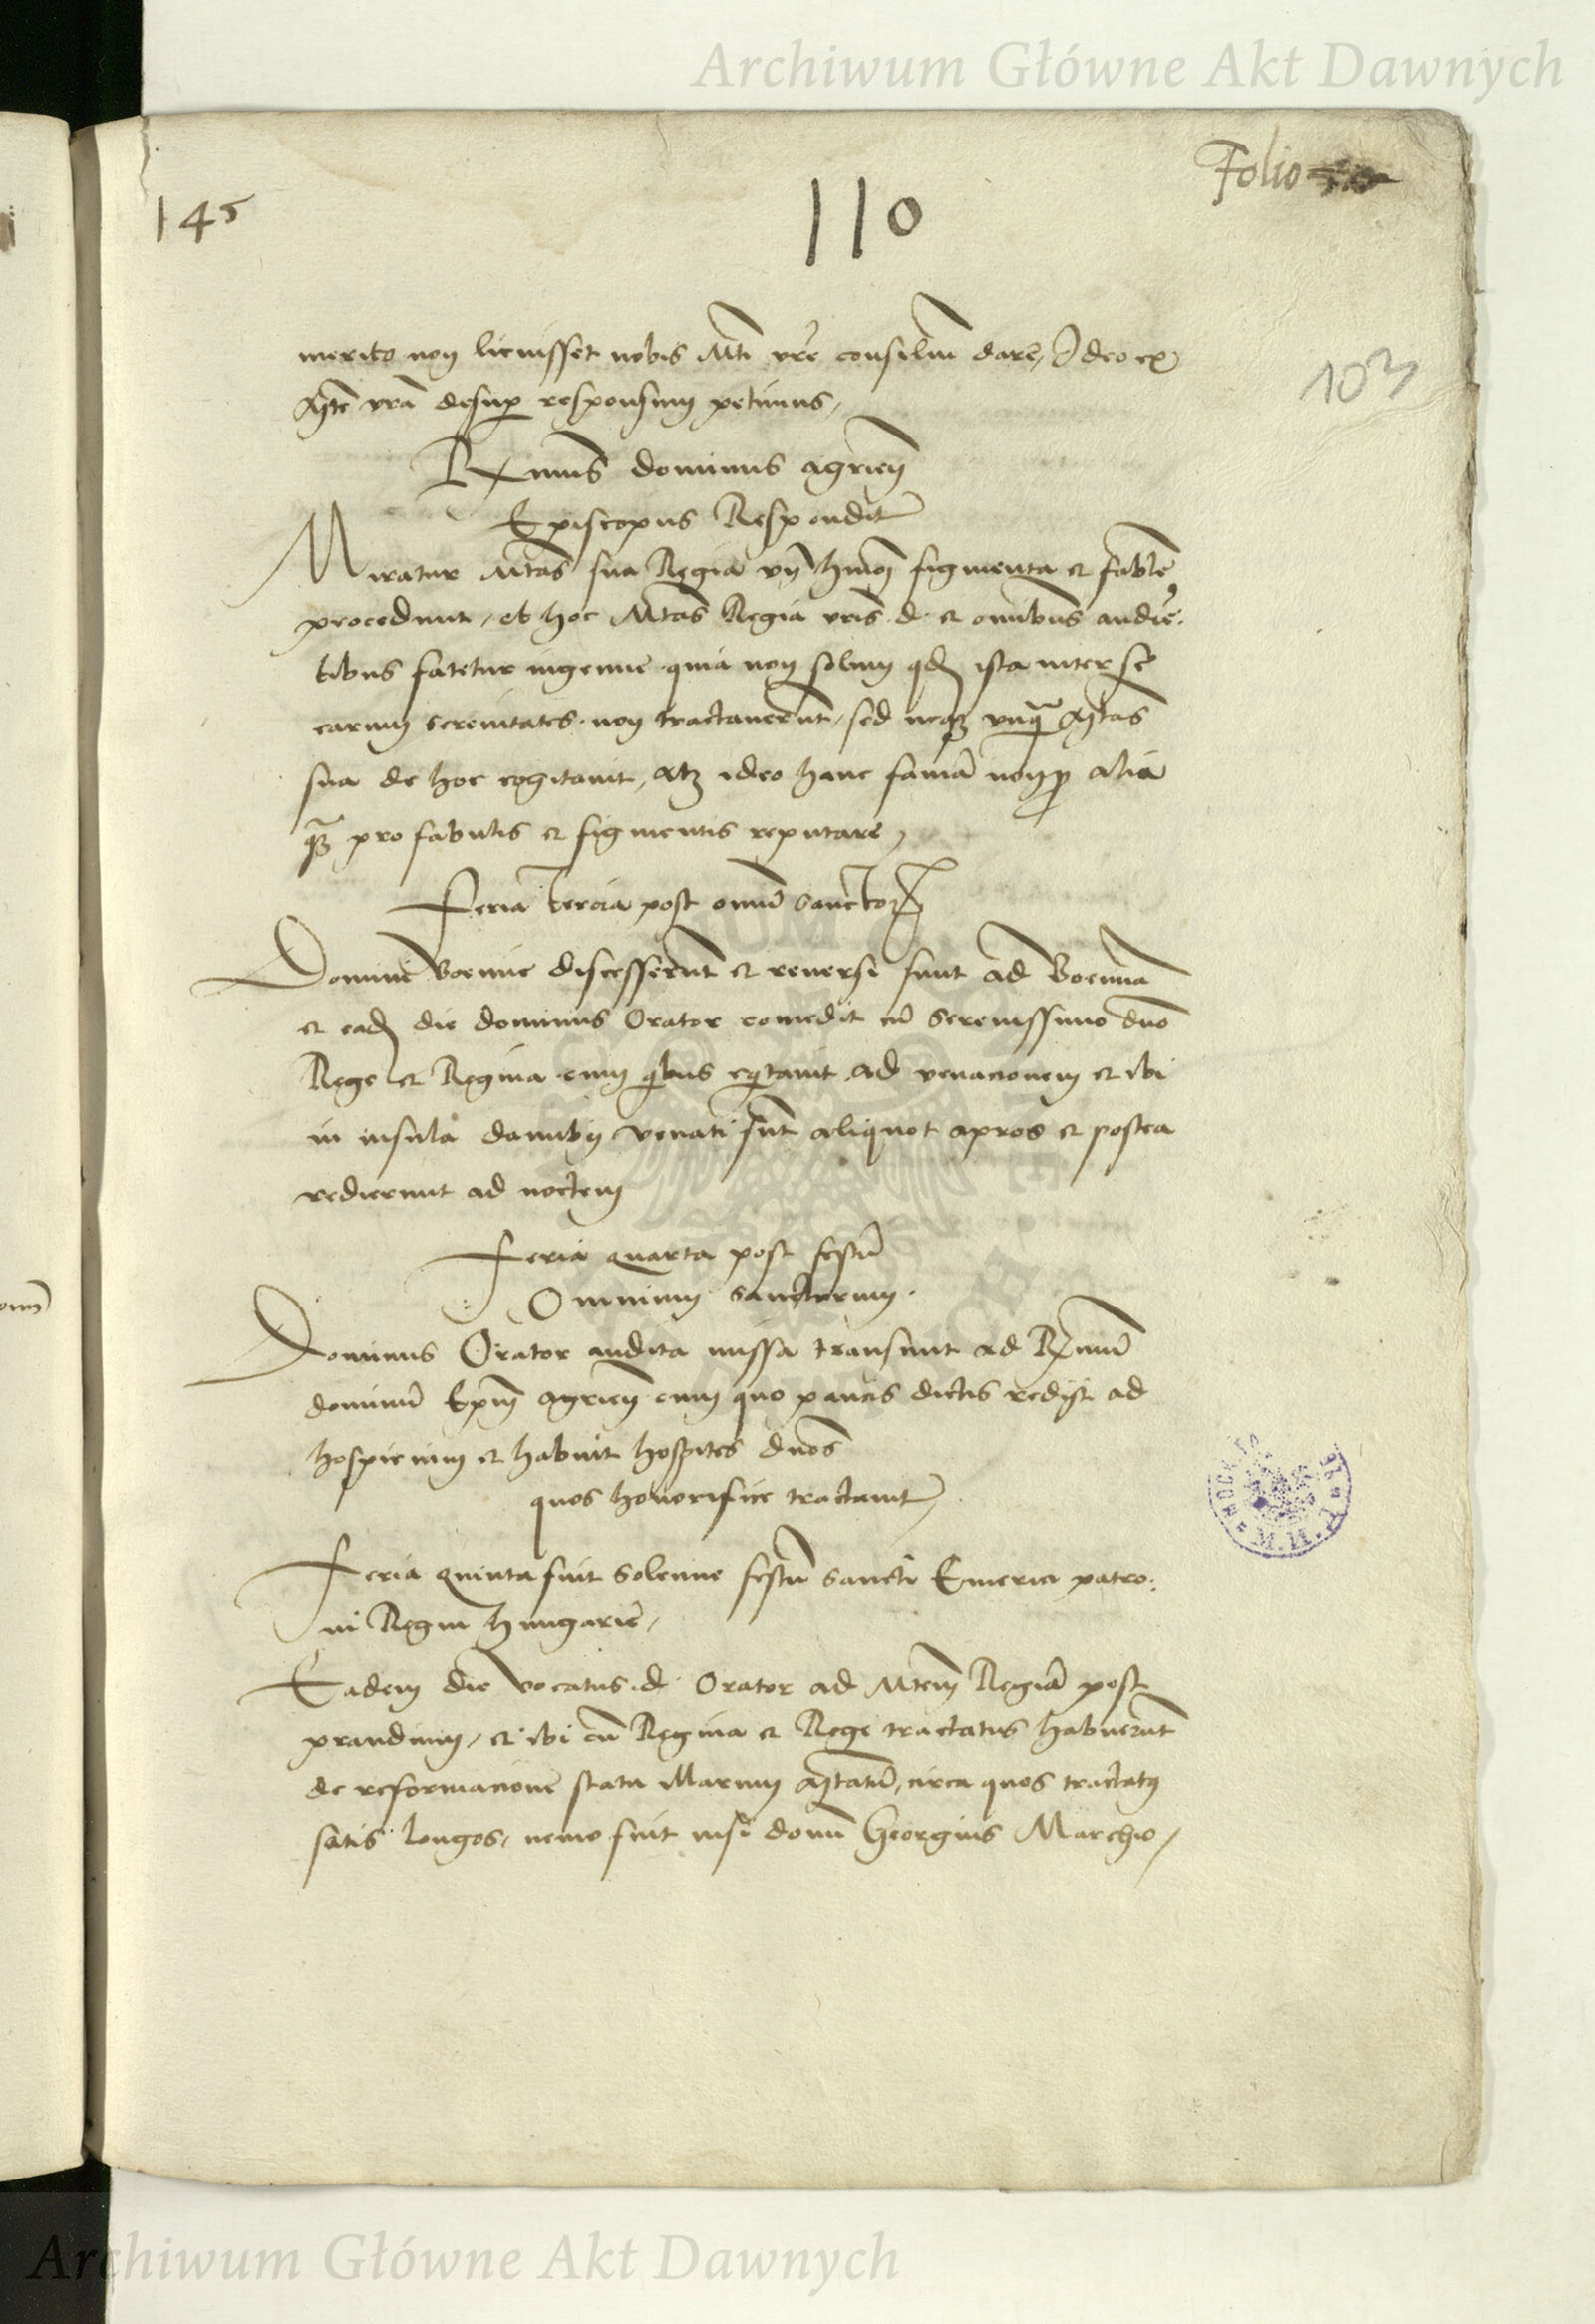 Archiwum Główne Akt Dawnych
Folio
145
110
103
merito non licuisset nobis Mti vre consilium dare, Ideo ex
Mte vra desup responsum petimus,
Rxmus dominus agrien
Episcopus Respondit
Miratur Mtas sua Regia vn hmoi figmenta et fable
procedunt, ob hoc Mtas Regia vris d. et omnibus audie.
tibus fatetur ingenue quia non solum qd ista inter se
earum serenitates non tractaverunt, sed neqz vnqua Mtas
sua de hoc cogitauit, atz ideo hanc fama non p alia
qz pro fabulis et figmentis reputare,
Feria tercia post omni sanctorz
Domini Boemie discesserunt et reuersi sunt ad Boemia
et eadz die dominus Orator comedit cu serenissimo dno
Rege et Regina cum qbus eqtauit ad venacionem et ibi
in insula danubij venati sunt aliquot apros et postea
redierunt ad noctem
Feria quarta post festu
Omnium sanctorum.
Dominus Orator audita missa transiuit ad Rxmu
dominu Epm agrien cum quo paucis dictis redijt ad
hospicium et habuit hospites dnos
quos honorifice tractauit,
Feria quinta fuit solenne festu sancti Emerici patro:
ni Regni hungarie,
Eadem die vocatus d. Orator ad Mtem Regia post
prandium, et ibi cu Regina et Rege tractatus habuerunt
de reformacione statu illarum Mtatu, circa quos tractatus
satis longos, nemo fuit nisi domi Georgius Marchio,
Archiwum Główne Akt Dawnych